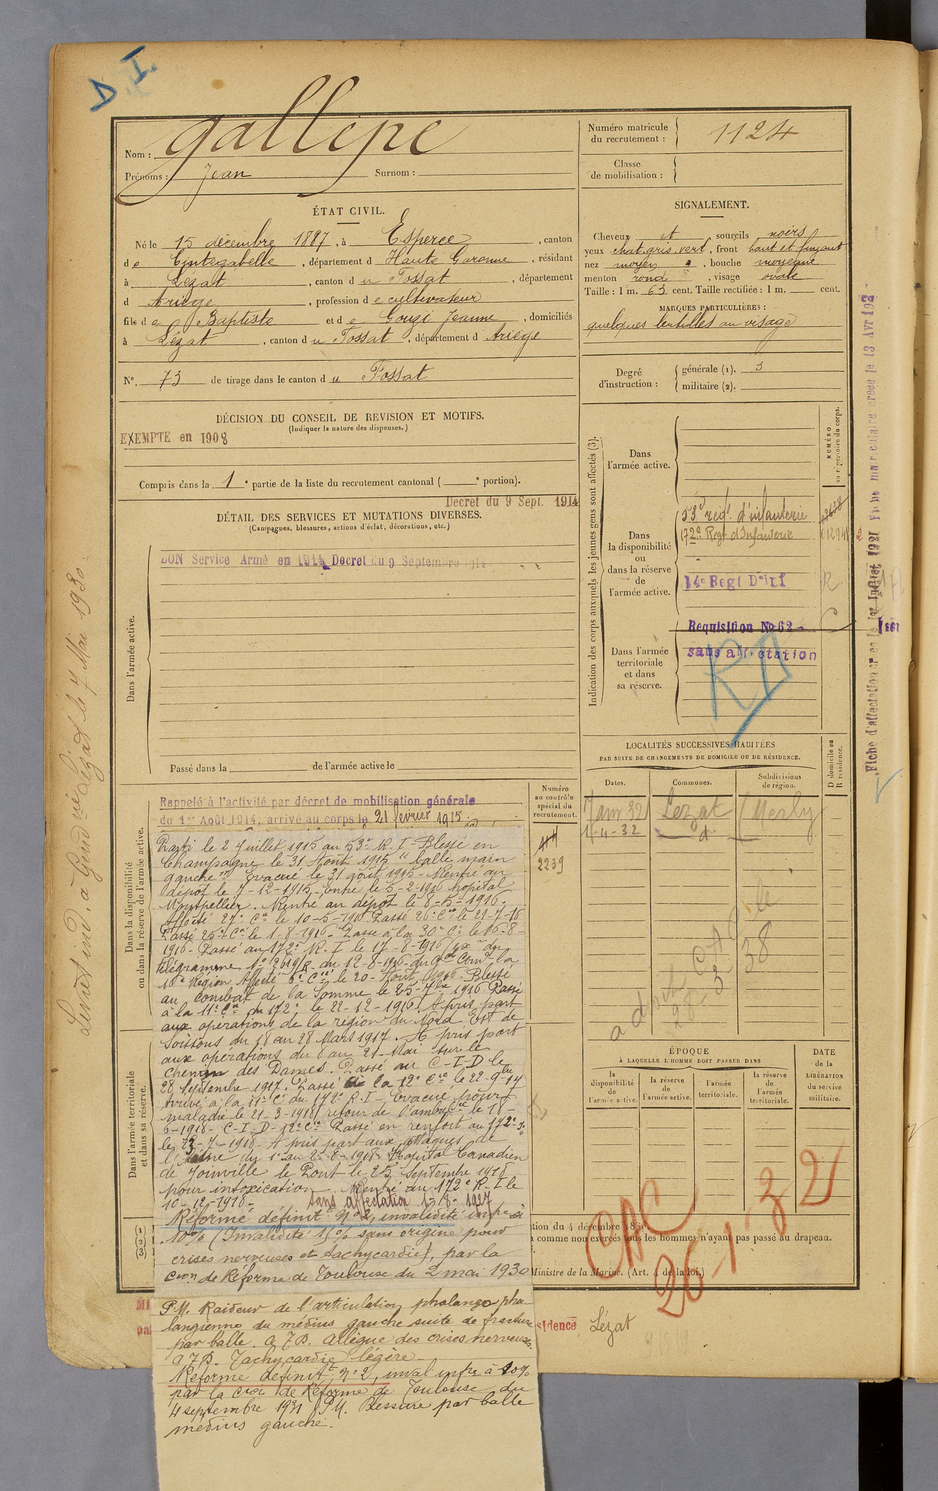 D. I.
Nom : Gallepe
Prénoms : Jean Surnom :
ÉTAT CIVIL.
Né le 15 décembre 1887, à Esperce, canton
de Cintegabelle, département d Haute Garonne, résidant
à Lézat, canton du Fossat, département
d Ariège, profession de cultivateur
fils de Baptiste et de Gouzi Jeanne, domiciliés
à Lézat, canton du Fossat, département d Ariège
N°. 73 de tirage dans le canton du Fossat
DÉCISION DU CONSEIL DE REVISION ET MOTIFS.
(Indiquer la nature des dispenses.)
EXEMPTE en 1908
Compris dans la 1e partie de la liste du recrutement cantonal ( e portion).
Decret du 9 Sept. 1914
DÉTAIL DES SERVICES ET MUTATIONS DIVERSES.
(Campagnes, blessures, actions d'éclat, décorations, etc.)
BON Service Armé en 1914 Decret du 9 Septembre 1914
Dans l'armée active.
Passé dans la de l'armée active le
Numéro
au contrôle
spécial du
recrutement.
2239
Dans la disponibilité
ou dans la réserve de l'armée active.
Rappelé à l'activité par décret de mobilisation générale
du 1er Août 1914, arrivé au corps le 21 février 1915.
Parti le 2 Juillet 1915 au 53e R. I. Blessé en
Champagne le 31 Août 1915 "balle main
gauche" Evacué le 31 août 1915 - Rentré au
dépot le 7-12-1915. Entré le 5-2-1916 hopital
Montpellier. Rentré au dépot le 8-5-1916.
Affecté 27e Cie le 10-5-1916 Passé 26e Cie le 21-7-16
Passé 25e Cie le 1-8-1916. Passé à la 30e Cie le 16-8-
1916 - Passé au 172e R. I le 17-8-1916
télégramme du 12-8-1916 du Gal Comt la
16e Région Affecté 6e Cie le 20 Août 1916 - Blessé
au combat de la Somme le 25-7bre 1916 Passé
à la 11e Cie du 172e le 22-12-1916. A pris part
aux opérations de la région du Nord Est de
Soissons du 18 au 28 Mars 1917. A pris part
aux opérations du 1 au 21 Mai sur le
chemin des Dames. Passé au C-I-D le
28 Septembre 1917. Passé à la 12e Cie le 22-9bre-17
Passé à la 11e Cie du 172e R-I - Evacué pour
maladie le 21-3-1918, retour de l'ambce le 18-
6-1918 - C-I-D - 12e Cie Passé en renfort au 172e
le -7-1918 - A pris part aux attaques de
l'Aisne du 1er au 2-8-1918 Hopital Canadien
de Joinville le Pont le 25 Septembre 1918
pour intoxication - Rentré au 172e R-I le
10-12-1918 - sans affectation 15-8-1927
Réformé définitt n°2, invalidité infre à
10% (Invalidité 15% sans origine pour
crises nerveuses et tachycardie), par la
Cion de Réforme de Toulouse du 2 mai 1930
P.M. Raideur de l'articulation phalango pha-
langienne du médius gauche suite de fracture
par balle. A.7B. Allègue des crises nerveuses
A.7B. Tachycardie légère
Réforme définit n°2, inval infre à 10%
par la Cion de Réforme de Toulouse du
4 septembre 1931 P.M. Blessure par balle
médius gauche.
Dans l'armée territoriale
et dans sa réserve.
(1)
(2)
(3)
Lézat
Numéro matricule
du recrutement : 1124
Classe
de mobilisation :
SIGNALEMENT.
Cheveux et sourcils noirs,
yeux chat gris vert, front haut et fuyant
nez moyen, bouche moyenne
menton rond, visage ovale
Taille : 1 m. 63 cent. Taille rectifiée : 1 m. cent.
MARQUES PARTICULIÈRES :
quelques lentilles au visage
Degré
d'instruction : générale (1). 3
militaire (2).
Indication des corps auxquels les jeunes gens sont affectés (3).
NUMÉRO
au répertoire du corps.
Dans
l'armée active.
Dans
la disponibilité
ou
dans la réserve
de
l'armée active.
53e reg. d'infanterie
172e Regt d'Infanterie
14e Regt D'Inf
Requisition No 62
sans affectation
Dans l'armée
territoriale
et dans
sa réserve.
LOCALITÉS SUCCESSIVES HABITÉES
PAR SUITE DE CHANGEMENTS DE DOMICILE OU DE RÉSIDENCE.
Dates. Communes. Subdivisions
de région.
D domicile ou
R résidence.
Janv 32 Lezat
1-4-32 d°
38
ÉPOQUE
À LAQUELLE L'HOMME DOIT PASSER DANS
la
disponibilité
de
l'armée active.
la réserve
de
l'armée active.
l'armée
territoriale.
la réserve
de
l'armée
territoriale.
DATE
de la
LIBÉRATION
du service
militaire.
CAC
26-1-32
tion du 4 décembre
comme non exercés tous les hommes n'ayant pas passé au drapeau.
Ministre de la Marine. (Art. de la loi.)